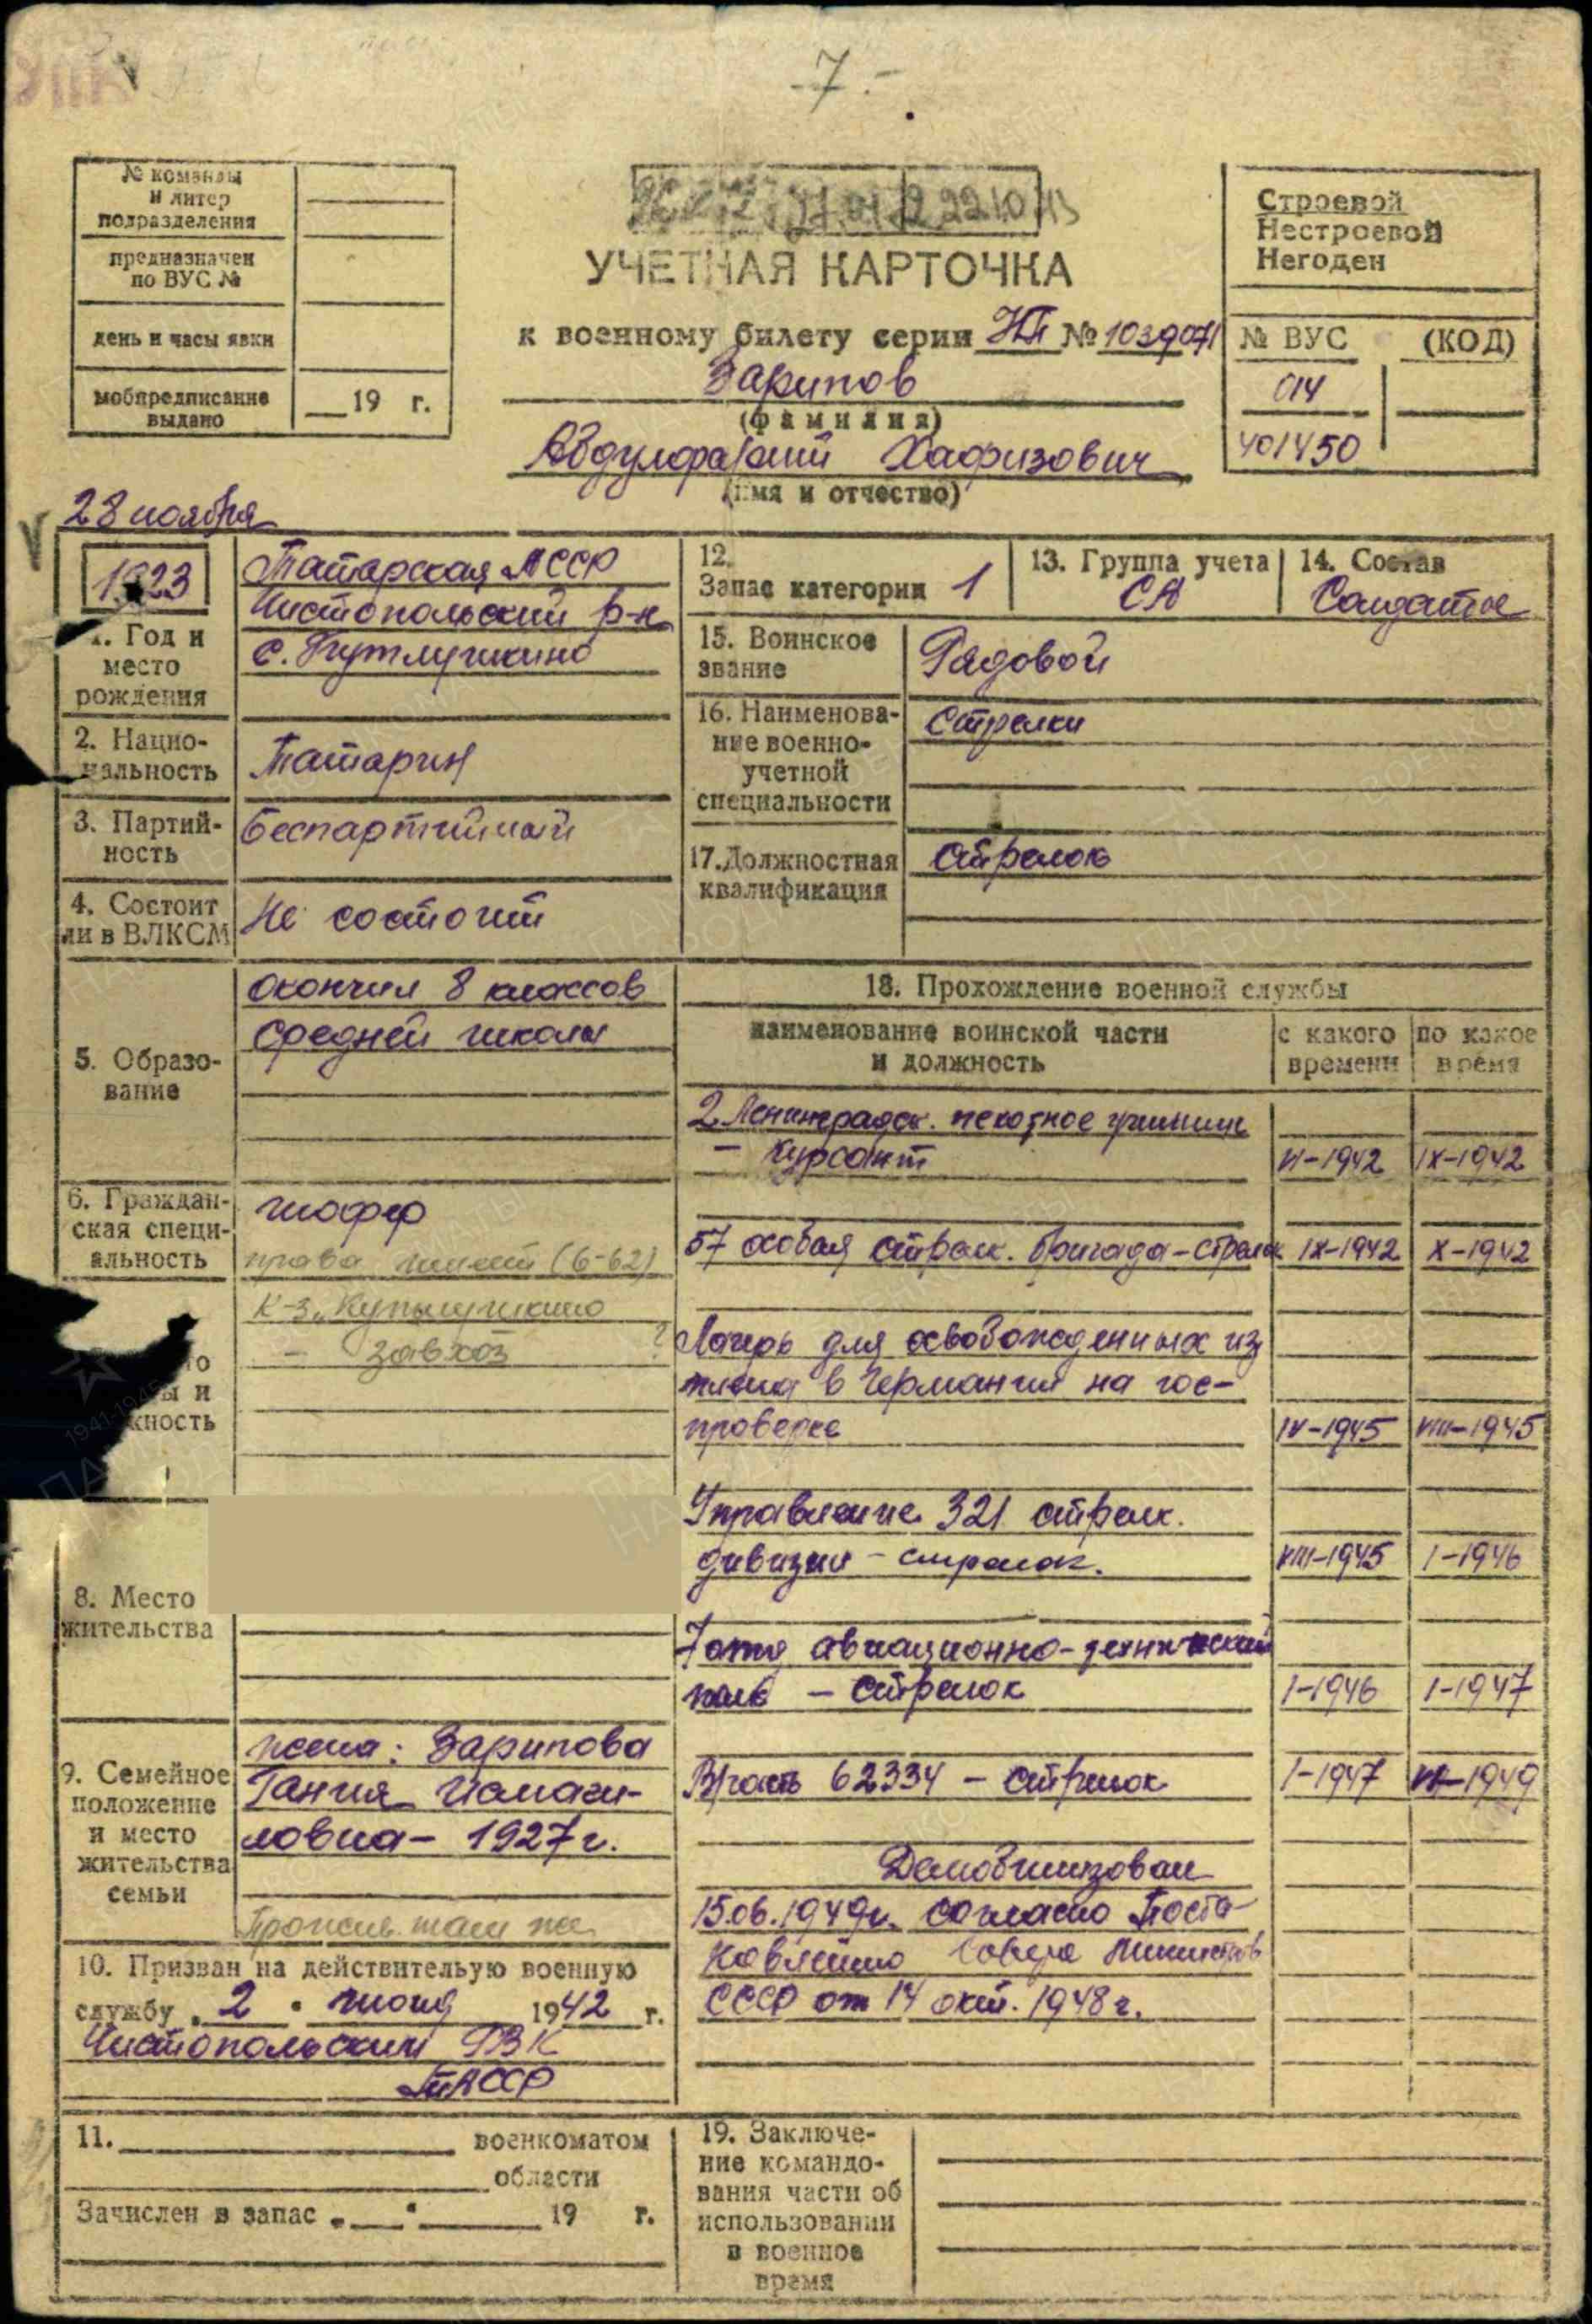 -7-
№ команды
и литер
подразделения
предназначен
по ВУС №
день и часы явки
мобпредписание
выдано
__19 г.
УЧЕТНАЯ КАРТОЧКА
к военному билету серии НП № 1039071
Зарипов
(фамилия)
Хафизович
(имя и отчество)
Строевой
Нестроевой
Негоден
№ ВУС (КОД)
014
401450
28 ноября
1923
1. Год и
место
рождения
Татарская АССР
Чистопольский р-н
с. Кутлушкино
2. Нацио-
нальность
Татарин
3. Партий-
ность
Беспартийный
4. Состоит
ли в ВЛКСМ
Не состоит
5. Образо-
вание
Окончил 8 классов
средней школы
6. Граждан-
ская специ-
альность
шофер
права имеет (6-62)
к-з „Кутлушкино
- завхоз ?
ы и
жность
8. Место
жительства
9. Семейное
положение
и место
жительства
семьи
жена: Зарипова
Гания Исмаги-
ловна - 1927 г.
Прожив. там же
10. Призван на действительую военную
службу „2" июня 1942 г.
Чистопольским РВК
ТАССР
11. ____ военкоматом
____ области
Зачислен в запас „__" ____ 19 г.
12.
Запас категории 1
13. Группа учета
СА
14. Состав
Солдаты
15. Воинское
звание
Рядовой
16. Наименова-
ние военно-
учетной
специальности
Стрелки
17. Должностная
квалификация
стрелок
18. Прохождение военной службы
наименование воинской части
и должность
с какого
времени
по какое
время
2 Ленинградск. пехотное училище
- курсант VI-1942 IX-1942
57 особая стрелк. бригада - стрелок IX-1942 X-1942
Лагерь для освобожденных из
плена в Германии на гос-
проверке IV-1945 VIII-1945
Управление 321 стрелк.
дивизии - стрелок. VIII-1945 I-1946
авиационно-технический
полк - стрелок I-1946 I-1947
В/часть 62334 - стрелок I-1947 VI-1949
Демобилизован
15.06.1949г. согласно Поста-
новления Совета Министров
СССР от 14 окт. 1948 г.
19. Заключе-
ние командо-
вания части об
использовании
в военное
время